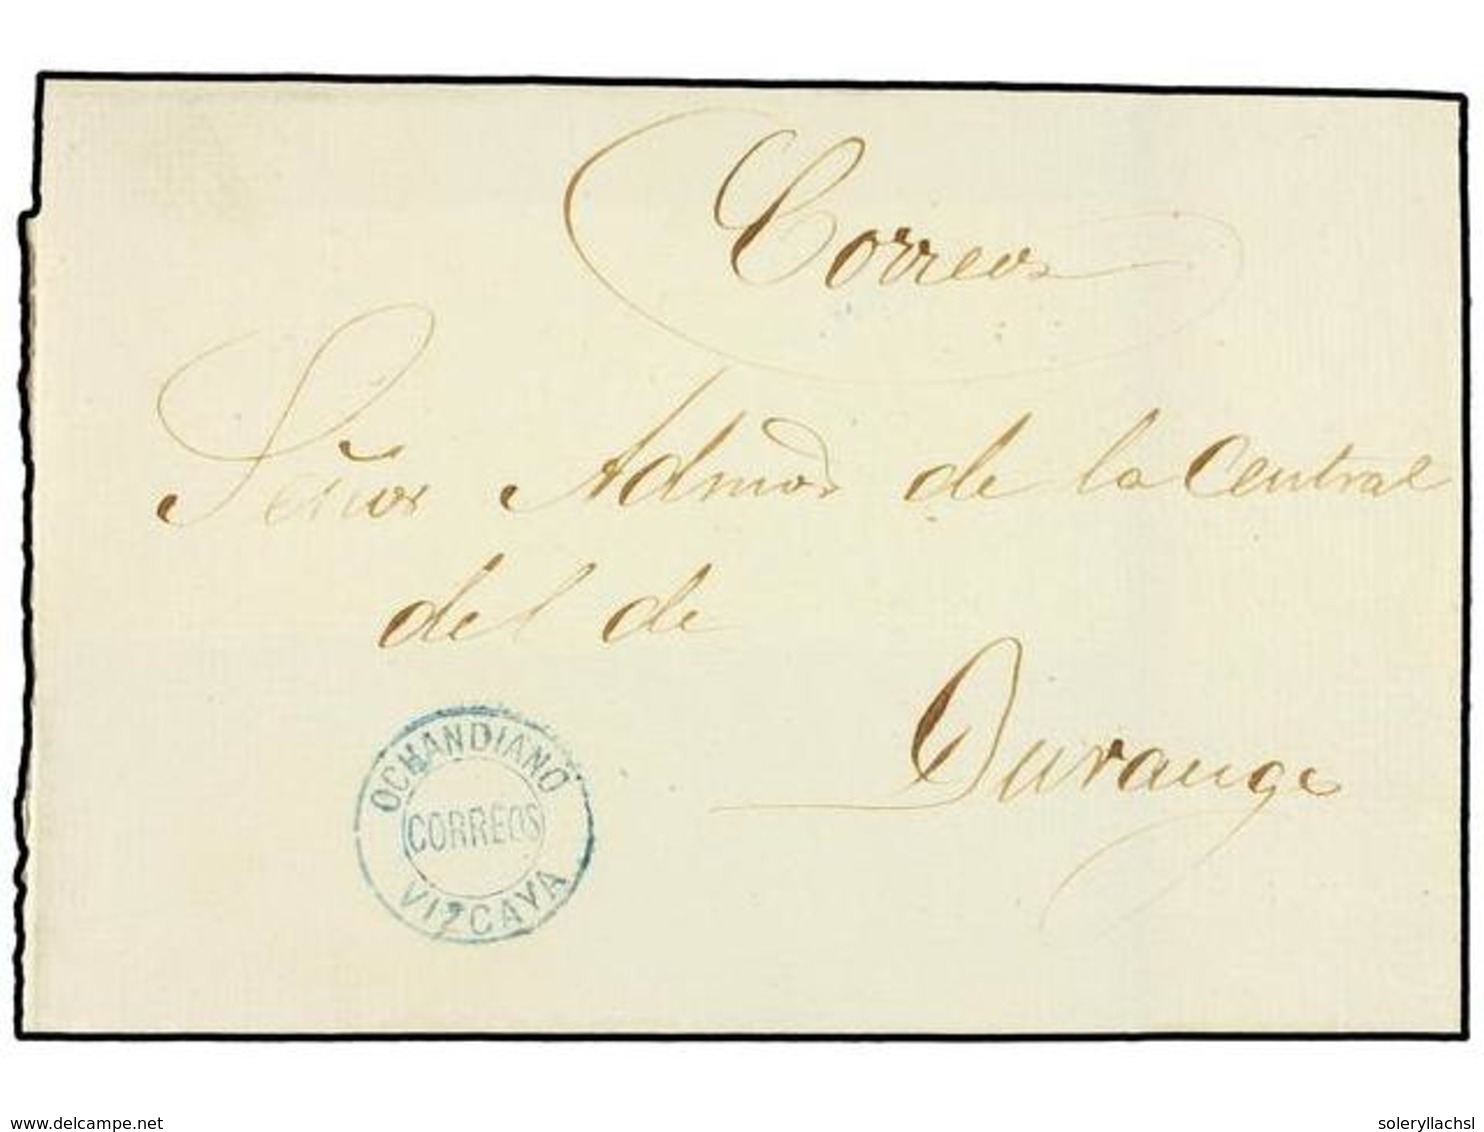 Correos
Señor Admor de la Central
del de
Durango
OCHANDIANO
CORREOS
VIZCAYA
delcampe.net
soleryllachsl